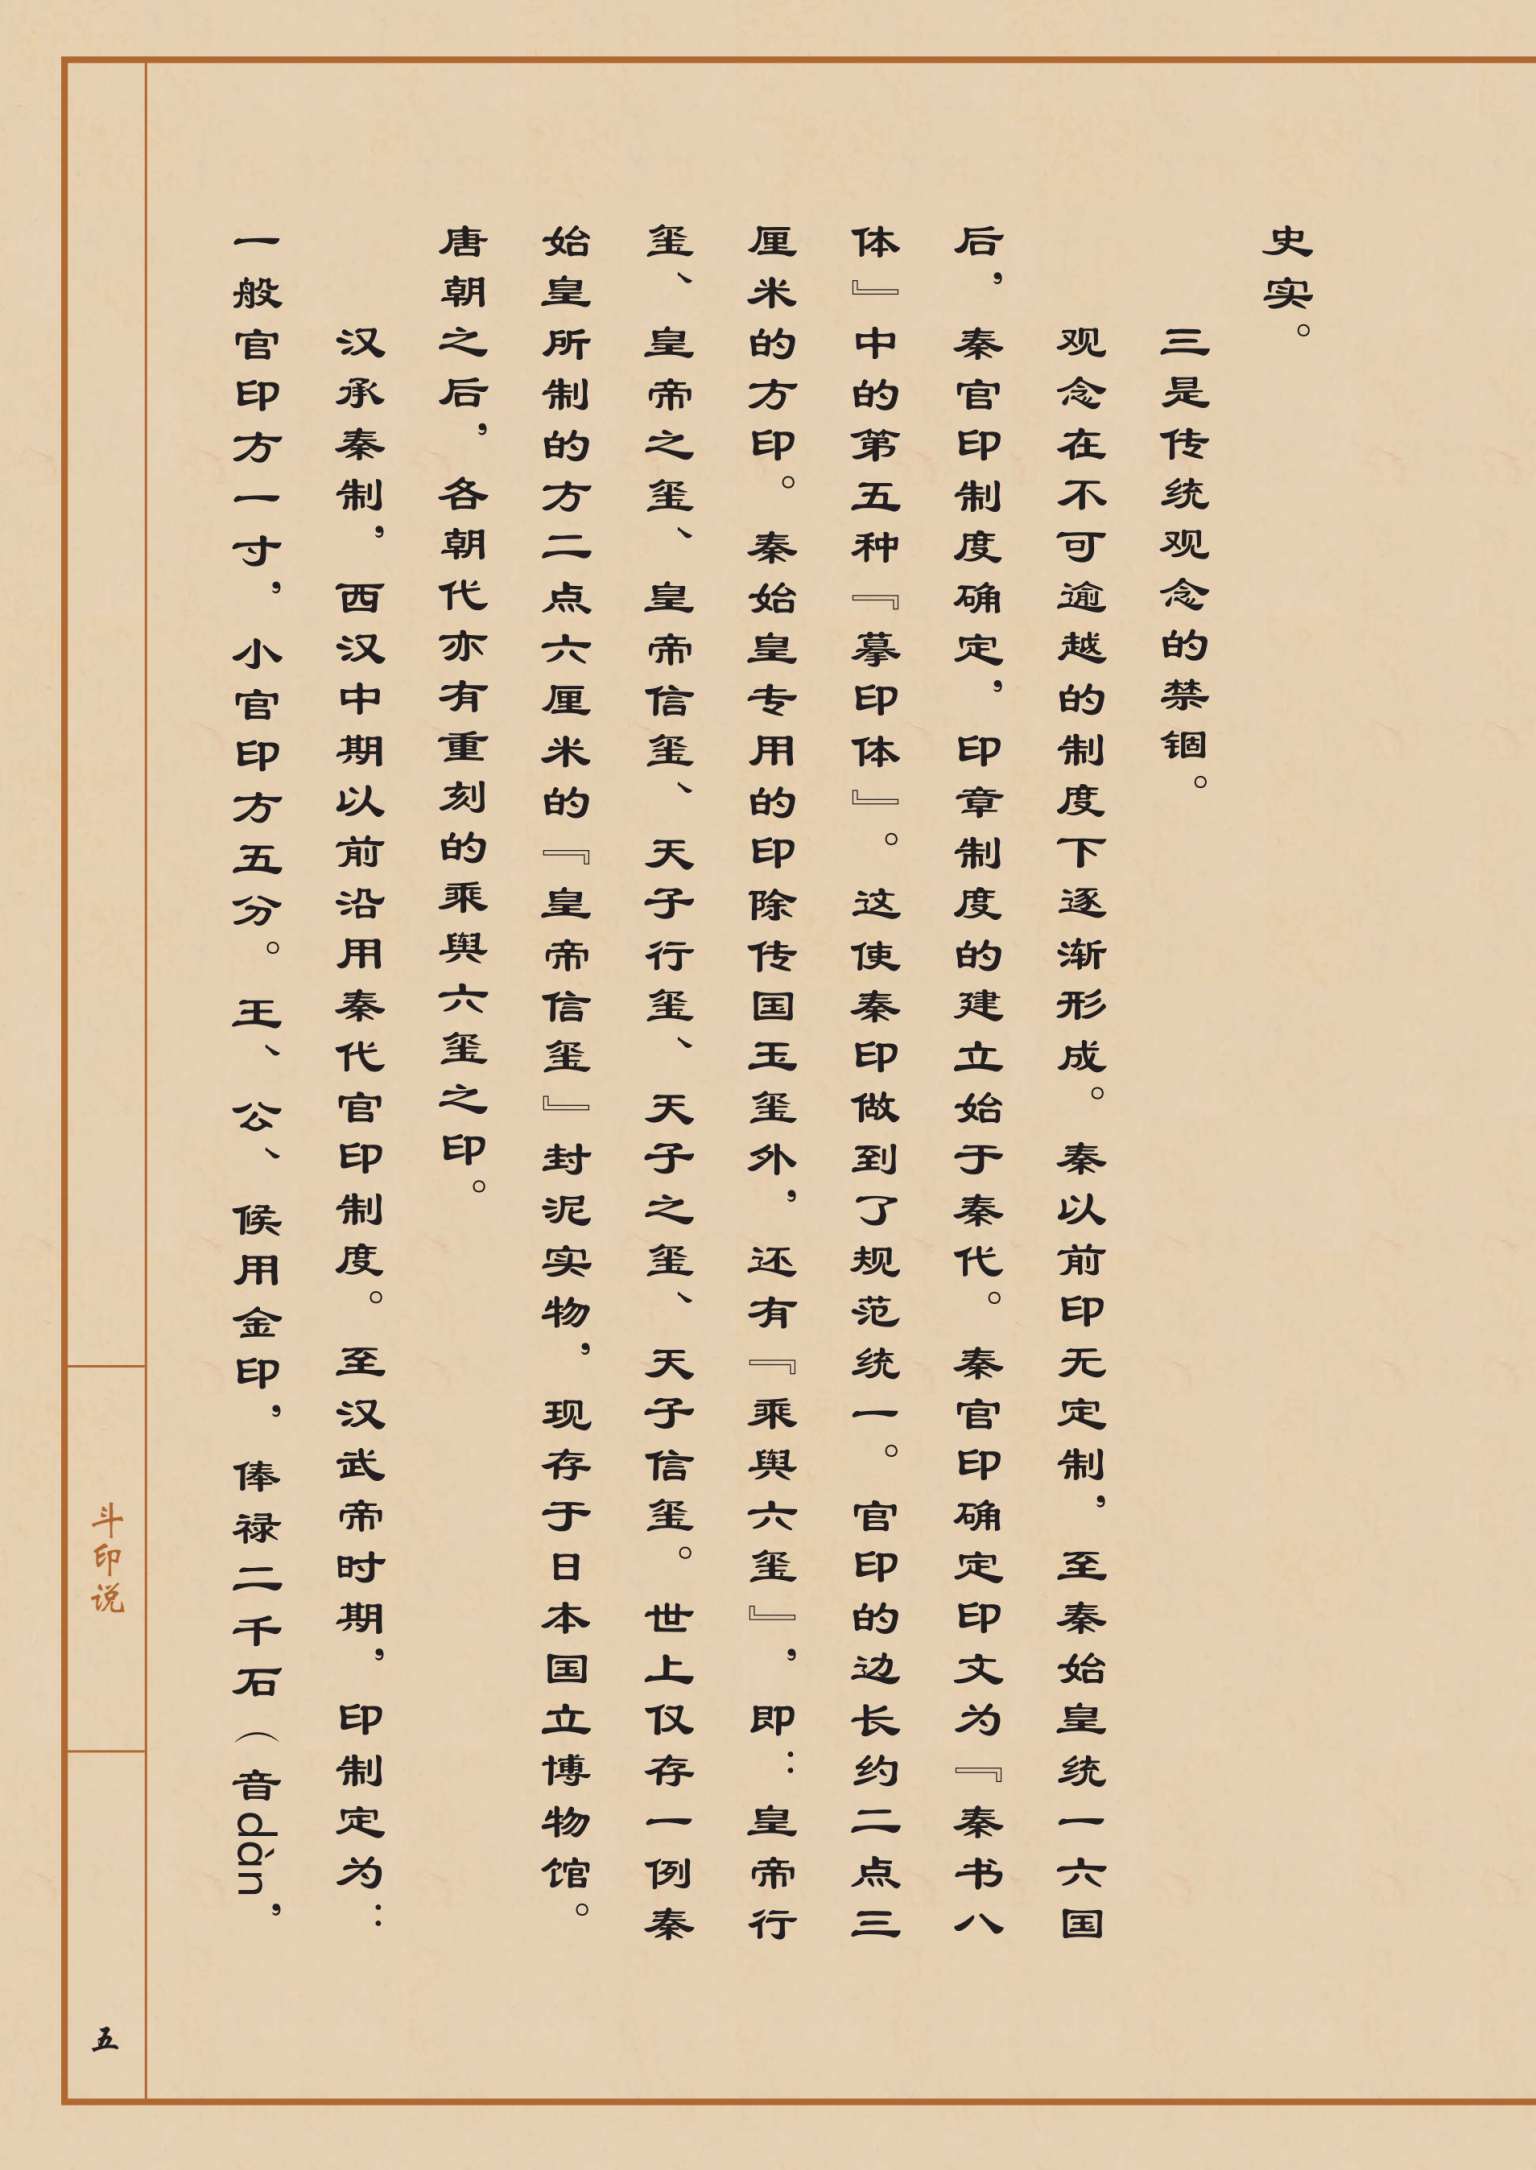 史实。
三是传统观念的禁锢。
观念在不可逾越的制度下逐渐形成。秦以前印无定制，至秦始皇统一六国
后，秦官印制度确定，印章制度的建立始于秦代。秦官印确定印文为『秦书八
体』中的第五种『摹印体』。这使秦印做到了规范统一。官印的边长约二点三
厘米的方印。秦始皇专用的印除传国玉玺外，还有『乘舆六玺』，即：皇帝行
玺、皇帝之玺、皇帝信玺、天子行玺、天子之玺、天子信玺。世上仅存一例秦
始皇所制的方二点六厘米的『皇帝信玺』封泥实物，现存于日本国立博物馆。
唐朝之后，各朝代亦有重刻的乘舆六玺之印。
汉承秦制，西汉中期以前沿用秦代官印制度。至汉武帝时期，印制定为：
一般官印方一寸，小官印方五分。王、公、候用金印，俸禄二千石（音dàn，
斗印说
五